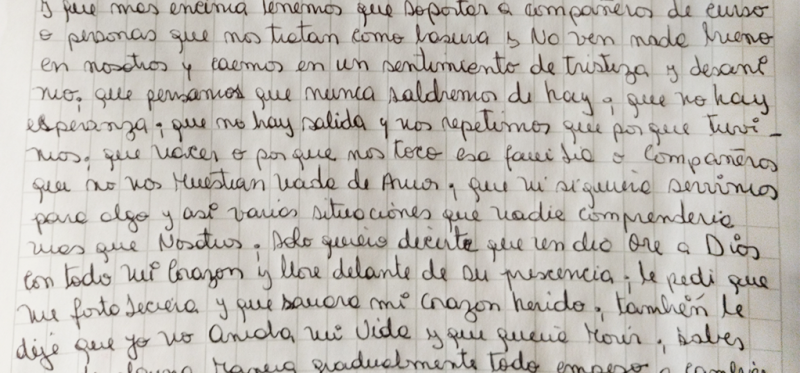 y que mas encima tenemos que soportar a compañeros de curso
o personas que nos tratan como basura y No ven nada bueno
en nosotros y caemos en un sentimiento de tristeza y desani
mo, que pensamos que nunca saldremos de hay, que no hay
esperanza, que no hay salida y nos repetimos que porque tuvi-
mos, que nacer o porque nos toco esa familia o compañeros
que no nos muestran nada de Amor, que ni siquiera servimos
para algo y así varias situaciones que nadie comprenderia
mas que Nosotros. Solo quiero decirte que un dia Ore a Dios
con todo mi Corazon y llore delante de su prescencia, le pedi que
me fortaleciera y que sanara mi corazon herido, también le
dije que yo no Amaba mi Vida y que queria Morir, sabes
Manera gradualmente todo empezo a